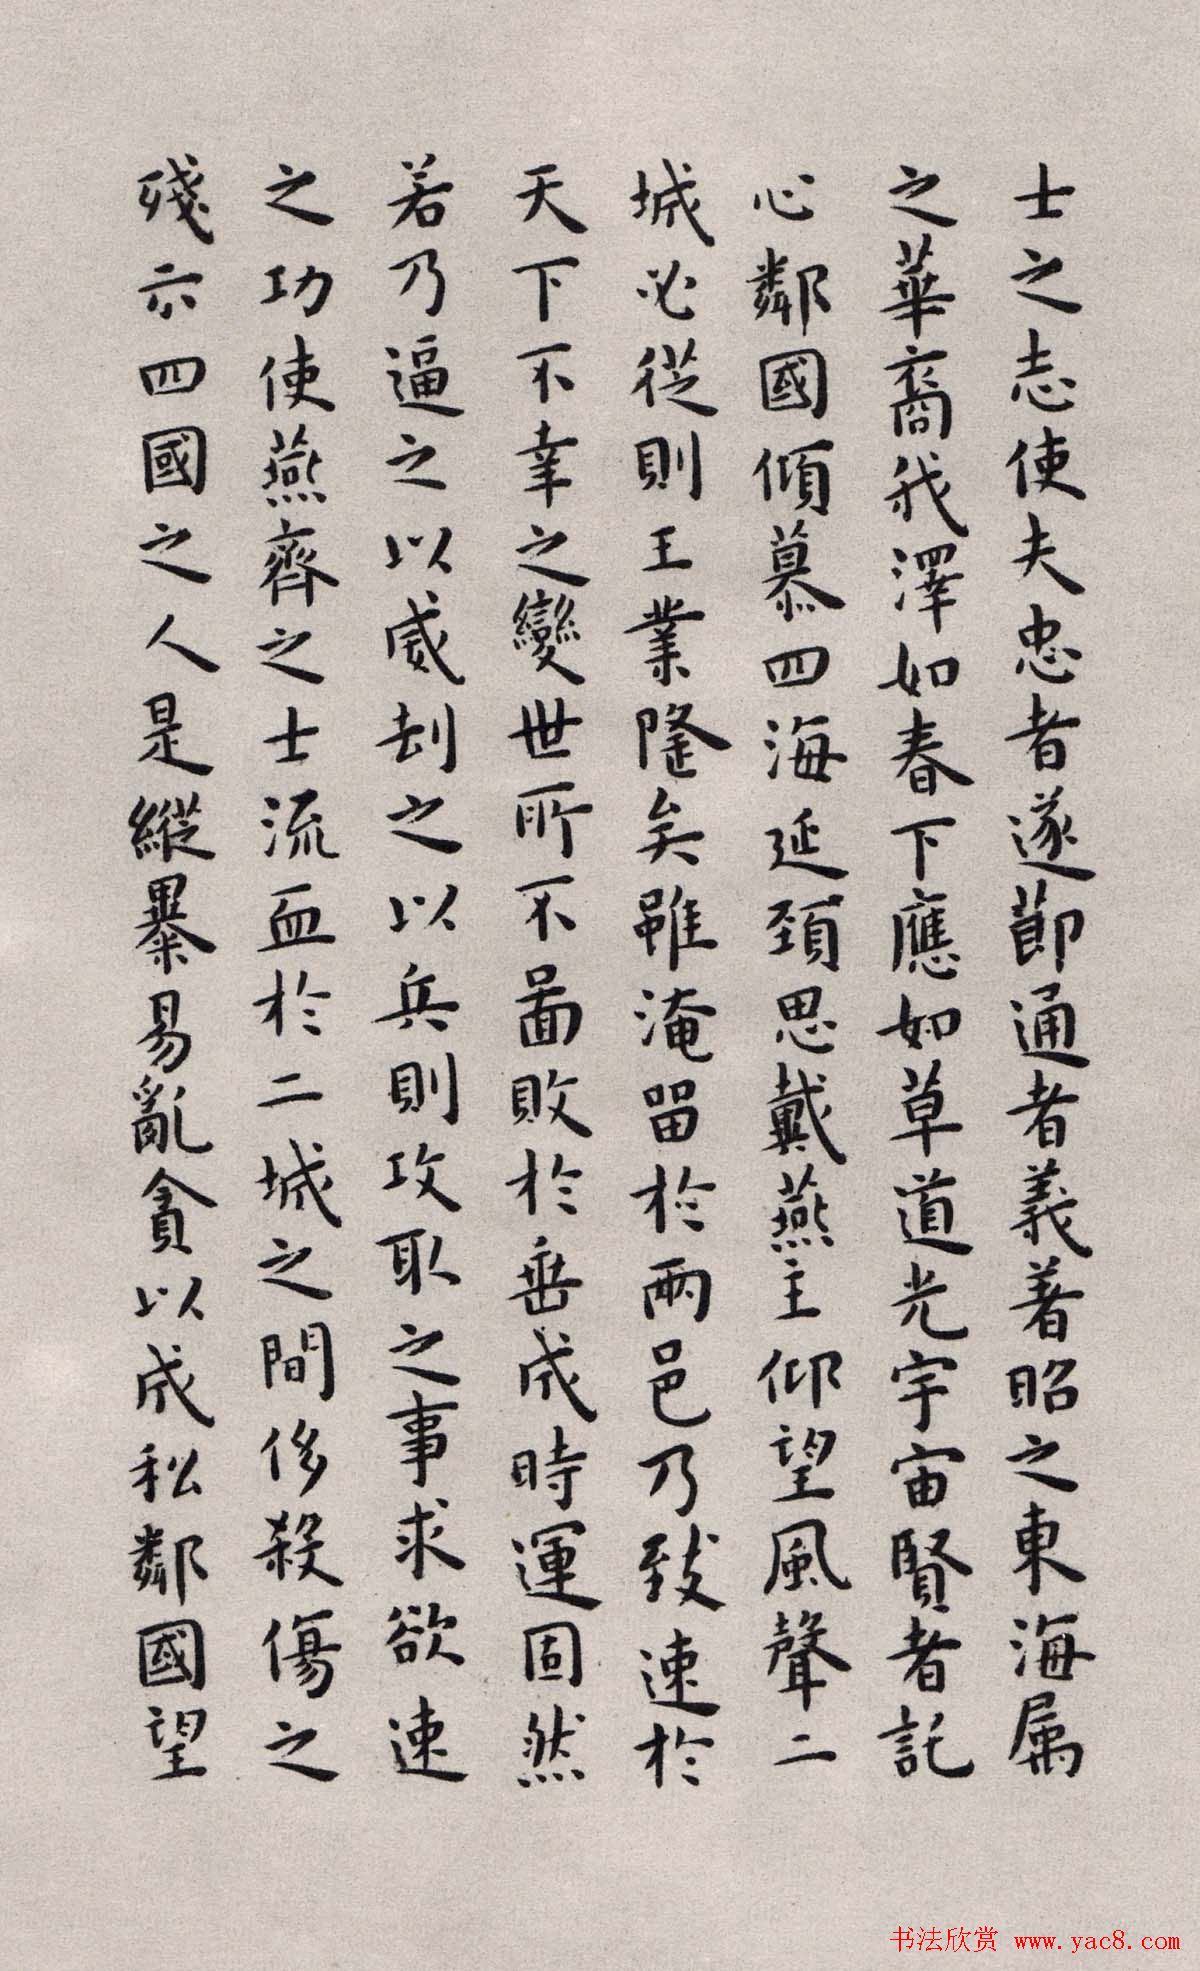 士之志使夫忠者遂節通者義著昭之東海属
之華裔我澤如春下應如草道光宇宙賢者託
心鄰國傾慕四海延頸思戴燕主仰望風聲二
城必從則王業隆矣雖淹留於兩邑乃致速於
天下不幸之變世所不圖敗於垂成時運固然
若乃逼之以威刦之以兵則攻取之事求欲速
之功使燕齊之士流血於二城之間侈殺傷之
殘示四國之人是縱暴易亂貪以成私鄰國望
书法欣赏 www.yac8.com